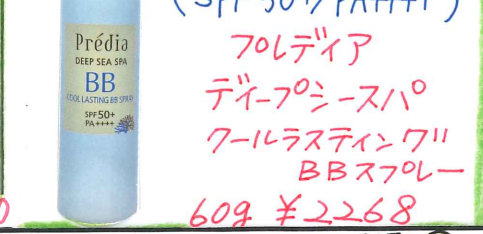 (SPF50+/PA++++)
Prédia
DEEP SEA SPA
BB
COOL LASTING BB SPRAY
SPF50+
PA++++
プレディア
ディープシースパ
クールラスティング
BBスプレー
60g ¥2268